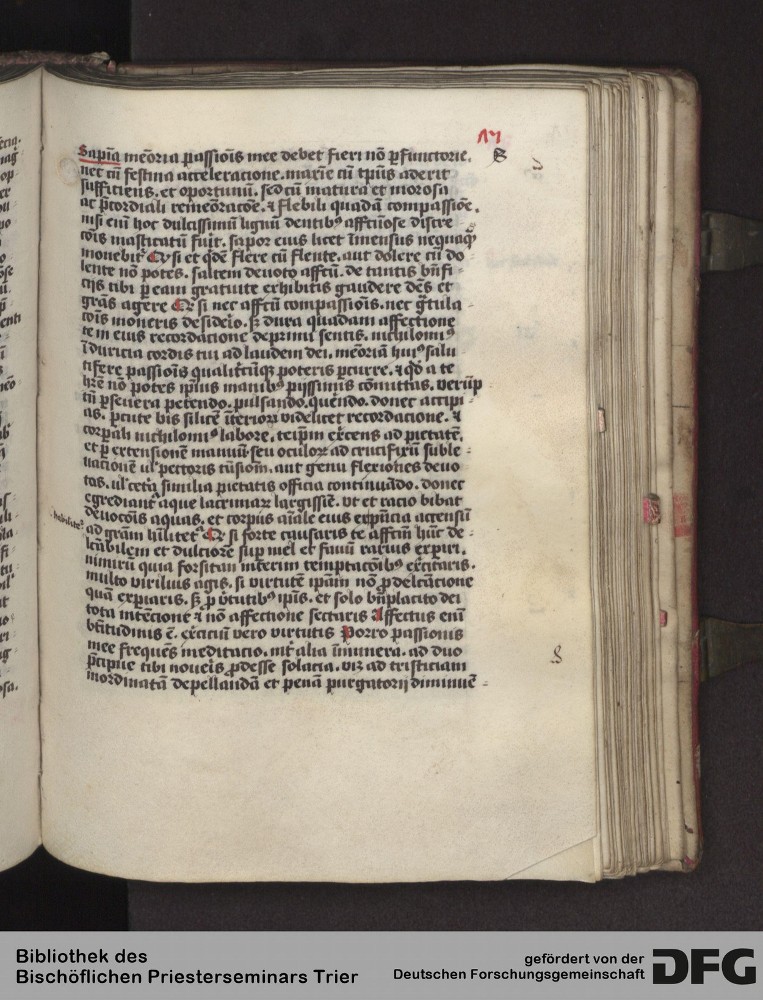 17
Sapīa mēoria passiōis mee debet fieri nō ꝑfunctorie.
nec cū festina acceleracione. maxīe cū tp̄us aderit
sufficiens. et oportunū. sed cū matura et morosa
ac p̄cordiali rememōracōe. ⁊ flebili quadā compassiōe.
nisi eni hoc dulcissimū lignū dentibꝰ affcūose discre
cōis masticatū fuīt. sapor eius licet īmensus nequaqͣ
monebit Et si
flere cū flente. aut dolere cū do
lente nō potes. saltem deuoto affcū. de tantis bn̄fi
cijs tibi ꝑ eam gratuite exhibitis gaudere dēs et
grās agere
si nec affcū compassiōis. nec gͣtula
cōis moueris desiderio. sꝫ dura quadam affectione
te in eius recordacione deprimi sentis. nichilomīꝰ
ī duricia cordis tui ad laudem dei. mēoriā huiꝰ salu
tifere passiōis
poteris ꝑcurre. ⁊ qd̄ a te
hr̄e nō potes ip̄ius manibꝰ pijssimis cōmittas. verūp
tn̄ ꝑseuera petendo. pulsando. quērdo. donec accipi
as. ꝑcute bis silicē īteriori videlicet recordacione. ⁊
corꝑali nichilomīꝰ labore. teip̄m exērcens ad pietatē.
et ꝑ extensionē manuū seu oculoꝝ ad crucifixū suble
uacionē ul' pectoris tūsiōm. aut genu flexiones deuo
tas. ul' cetā similia pietatis officia continuādo. donec
egrediantͬ aque lacrimaꝝ largissīe. ut et racio bibat
deuocōis aquas. et corpus aīale eius
ad grām
si forte causaris te affcm hūc de
lcābilem et dulciorē suꝑ mel et fauū rarius experiri.
nimirū quia forsitan interim temptacōibꝰ exc̄itaris.
multo virilius agis. si virtutē ip̄am nō ꝓ delc̄acione
quā exꝑiaris. sꝫ ꝓ v̄tutibꝰ ip̄is. et solo bn̄placito dei
tota intēcione ⁊ nō affectione sectaris Affectus eni
bt̄itudinis ē. exc̄iciū vero virtutis Porro passionis
mee frequēs meditacio. int̄ alia īnunera. ad duo
p̄cipue tibi noueris ꝓdesse solacia. viꝫ ad tristiciam
inordinatā depellandā et penā purgatorij diminuē
Bibliothek des
Bischöflichen Priesterseminars Trier
gefördert von der
Deutschen Forschungsgemeinschaft
DFG